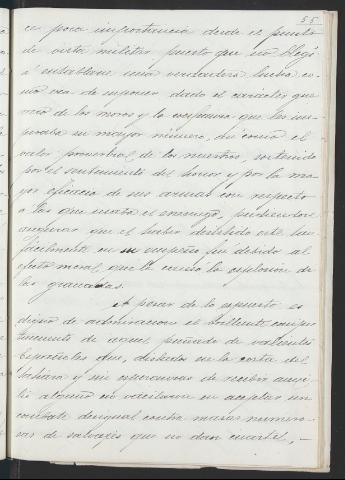 55
ce poca importancia desde el punto
de vista militar puesto que no llegó
á entablarse una verdadera lucha co-
mo era de suponer dado el carácter que
de los moros y la confianza que les ins-
piraba su mayor número, así como el
valor proverbial de los nuestros, sostenido
por el sentimiento del honor y por la ma-
yor eficacia de sus armas con respecto
á las que usaba el enemigo, pudiendose
asegurar que el haber desistido este tan
fácilmente en su empeño fué debido al
efecto moral que le causó la explosion de
las granadas.
A pesar de lo expuesto es
digno de admiracion el brillante compor-
tamiento de aquel puñado de valientes
Españoles que, aislados en la costa del
Sahara y sin esperanzas de recibir auxi-
lio alguno no vacilaron en aceptar un
combate desigual contra masas numero-
sas de salvajes que no dan cuartel, -